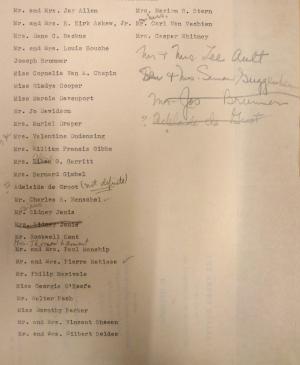 Mr. and Mrs. Jay Allen
Mr. and Mrs. R. Kirk Askew, Jr.
Mrs. Hans C. Backus
Mr. and Mrs. Louis Bouche
Joseph Brummer
Miss Cornelia Van A. Chapin
Miss Gladys Cooper
Miss Marcia Davenport
Mr. Jo Davidson
Mrs. Muriel Draper
Mrs. Valentine Dudensing
Mrs. William Francis Gibbs
Mrs. G. Garritt
Mrs. Bernard Gimbel
Adelaide de Groot (not definite)
Mr. Charles R. Henschel
Mr. Sidney Janis
Mrs. Sidney Janis
Mr. Rockwell Kent
Mrs. Thomas Lamont
Mr. and Mrs. Paul Manship
Mr. and Mrs. Pierre Matisse
Mr. Philip Merivale
Miss Georgia O'Keefe
Mr. Walter Pach
Miss Dorothy Parker
Mr. and Mrs. Vincent Sheean
Mr. and Mrs. Gilbert Seldes
Mrs. Marion S. Stern
Mr. Carl Van Vechten
Mrs. Casper Whitney
Mr & Mrs. Lee Ault
& Mrs. Simon Guggenheim
Mr. Jos Brummer
? Adelaide de Groot